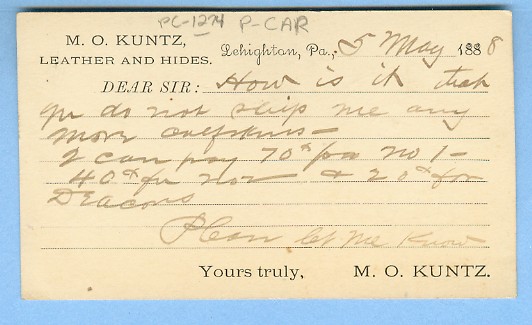 PC-1274 P-CAR
M. O. KUNTZ,
LEATHER AND HIDES.
Lehighton, Pa., 5 May 1888
DEAR SIR: How is it that
you do not ship me any
more calfskins –
I can pay 70 cts for No 1 –
40 cts for No 2 & 20 cts for
Deacons
Please let me know
Yours truly, M. O. KUNTZ.